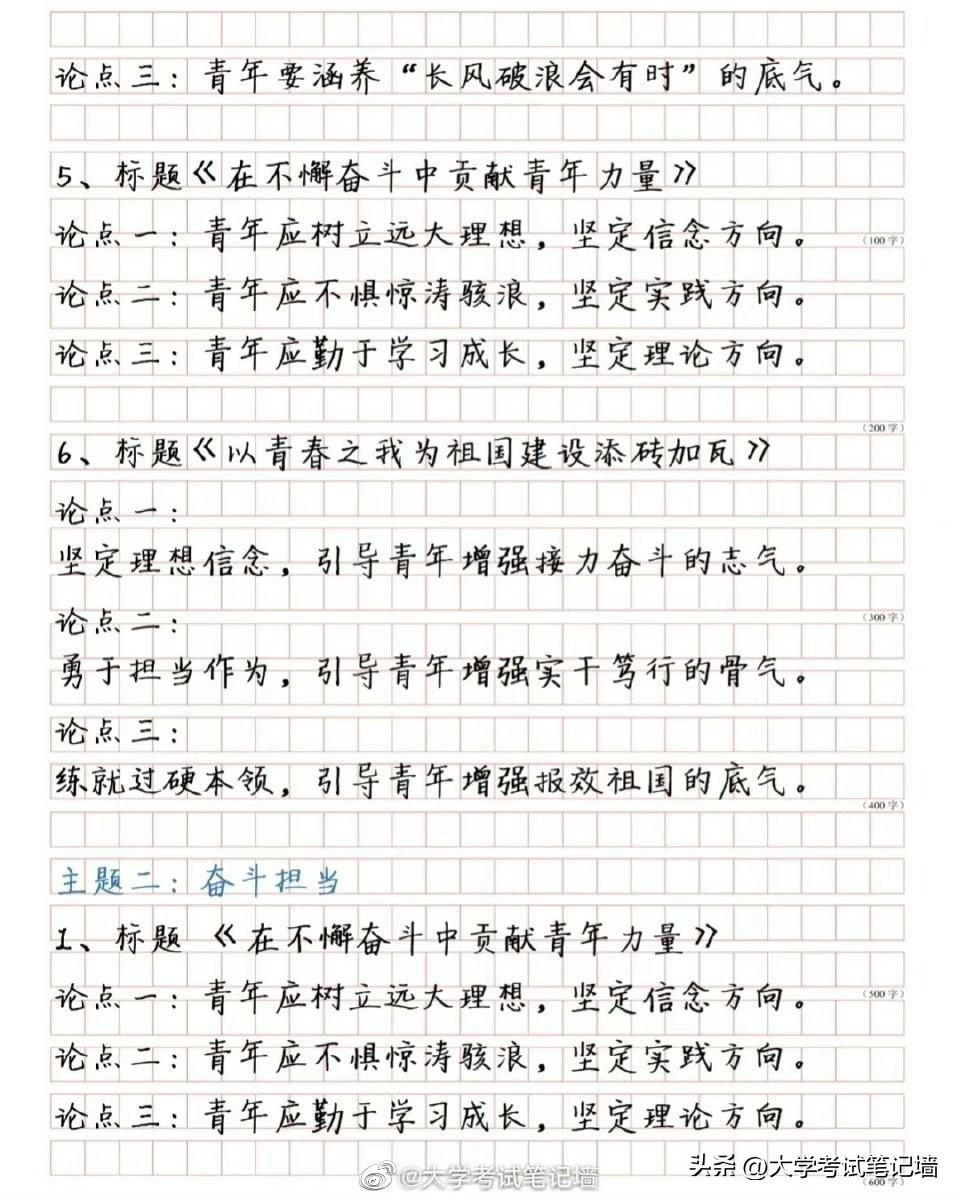 论点三：青年要涵养“长风破浪会有时”的底气。
5、标题《在不懈奋斗中贡献青年力量》
论点一：青年应树立远大理想，坚定信念方向。
（100字）
论点二：青年应不惧惊涛骇浪，坚定实践方向。
论点三：青年应勤于学习成长，坚定理论方向。
（200字）
6、标题《以青春之我为祖国建设添砖加瓦》
论点一：
坚定理想信念，引导青年增强接力奋斗的志气。
论点二：
（300字）
勇于担当作为，引导青年增强实干笃行的骨气。
论点三：
练就过硬本领，引导青年增强报效祖国的底气。
（400字）
主题二：奋斗担当
1、标题《在不懈奋斗中贡献青年力量》
论点一：青年应树立远大理想，坚定信念方向。
（500字）
论点二：青年应不惧惊涛骇浪，坚定实践方向。
论点三：青年应勤于学习成长，坚定理论方向。
@大学考试笔记墙
头条 @大学考试笔记墙
（600字）